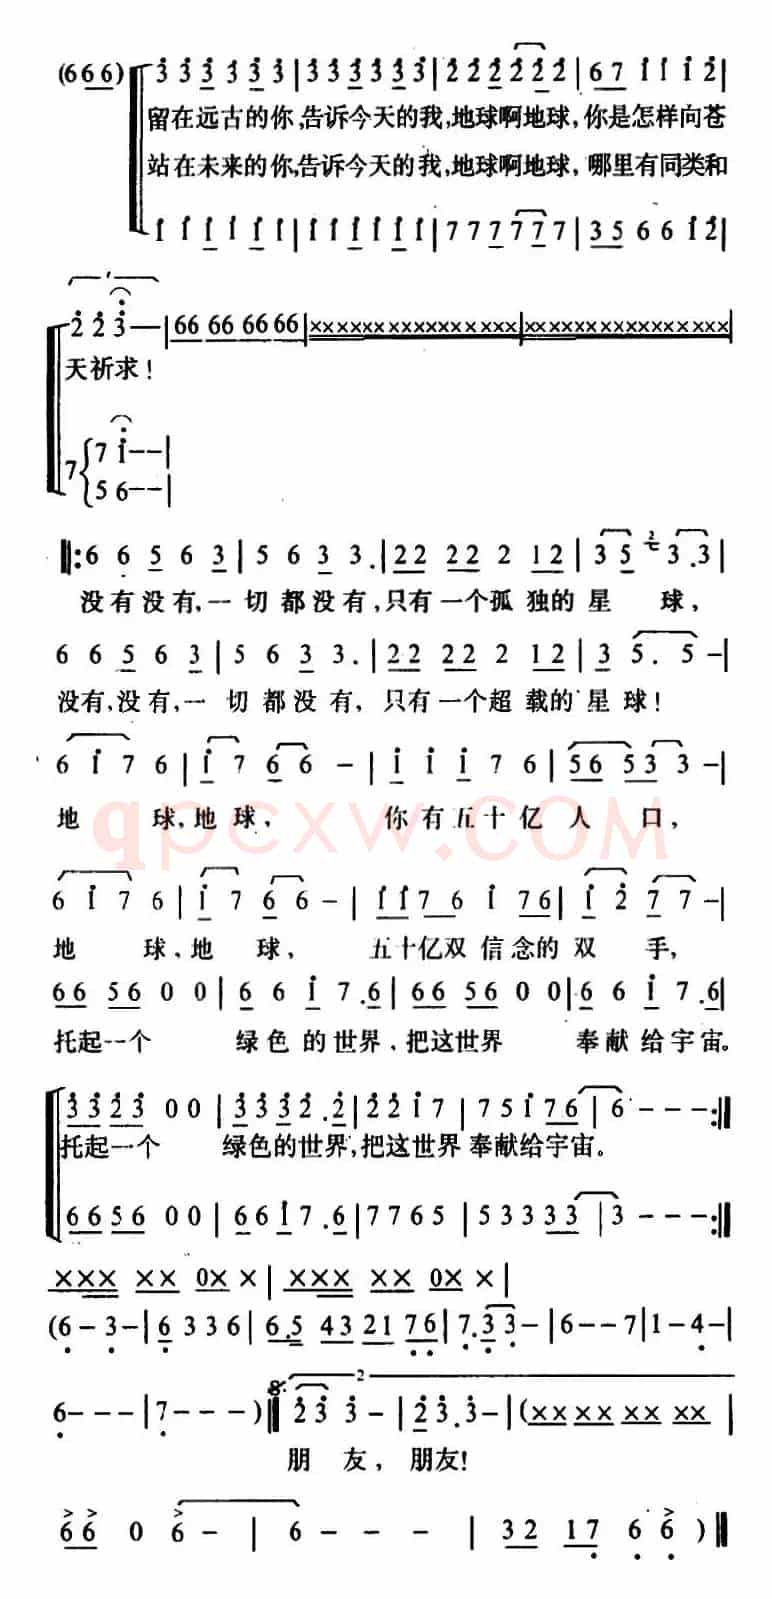 (666) 3 3 3 3 3 3 | 3 3 3 3 3 3 | 2 2 2 2 2 2 | 6 7 1 1 1 2 |
留在远古的你,告诉今天的我,地球啊地球,你是怎样向苍
站在未来的你,告诉今天的我,地球啊地球,哪里有同类和
1 1 1 1 1 1 | 1 1 1 1 1 1 | 7 7 7 7 7 7 | 3 5 6 6 1 2 |
2 2 3 — | 66 66 66 66 | ×××××××××××××××× | ×××××××××××××××× |
天祈求!
7 1 - - |
7
5 6 - - |
6 6 5 6 3 | 5 6 3 3. | 22 22 2 12 | 3 5 3 .3 |
没有没有,一切都没有,只有一个孤独的星球,
6 6 5 6 3 | 5 6 3 3. | 22 22 2 12 | 3 5. 5 - |
没有,没有,一切都没有,只有一个超载的星球!
6 1 7 6 | 1 7 6 6 - | 1 1 1 7 6 | 55 53 3 - |
地球,地球,你有五十亿人口,
qpcxw.COM
6 1 7 6 | 1 7 6 6 - | 1 1 7 6 1 76 | 1 2 7 7 - |
地球,地球,五十亿双信念的双手,
66 56 0 0 | 6 6 1 7.6 | 66 56 0 0 | 6 6 1 7.6 |
托起一个绿色的世界,把这世界奉献给宇宙。
3 3 2 3 0 0 | 3 3 3 2.2 | 2 2 1 7 | 7 5 1 76 | 6 - - - :||
托起一个绿色的世界,把这世界奉献给宇宙。
6 6 5 6 0 0 | 6 6 1 7.6 | 7 7 6 5 | 5 3 3 3 3 | 3 - - - :||
××× ×× 0× × | ××× ×× 0× × |
(6 - 3 - | 6 3 3 6 | 6.5 43 21 76 | 7.3 3 - | 6 - - 7 | 1 - 4 - |
6 - - - | 7 - - - ) 2 3 3 - | 2 3.3 - | (×× ×× ×× ×× |
2
朋友,朋友!
6 6 0 6 - | 6 - - - | 32 17 6 6 )